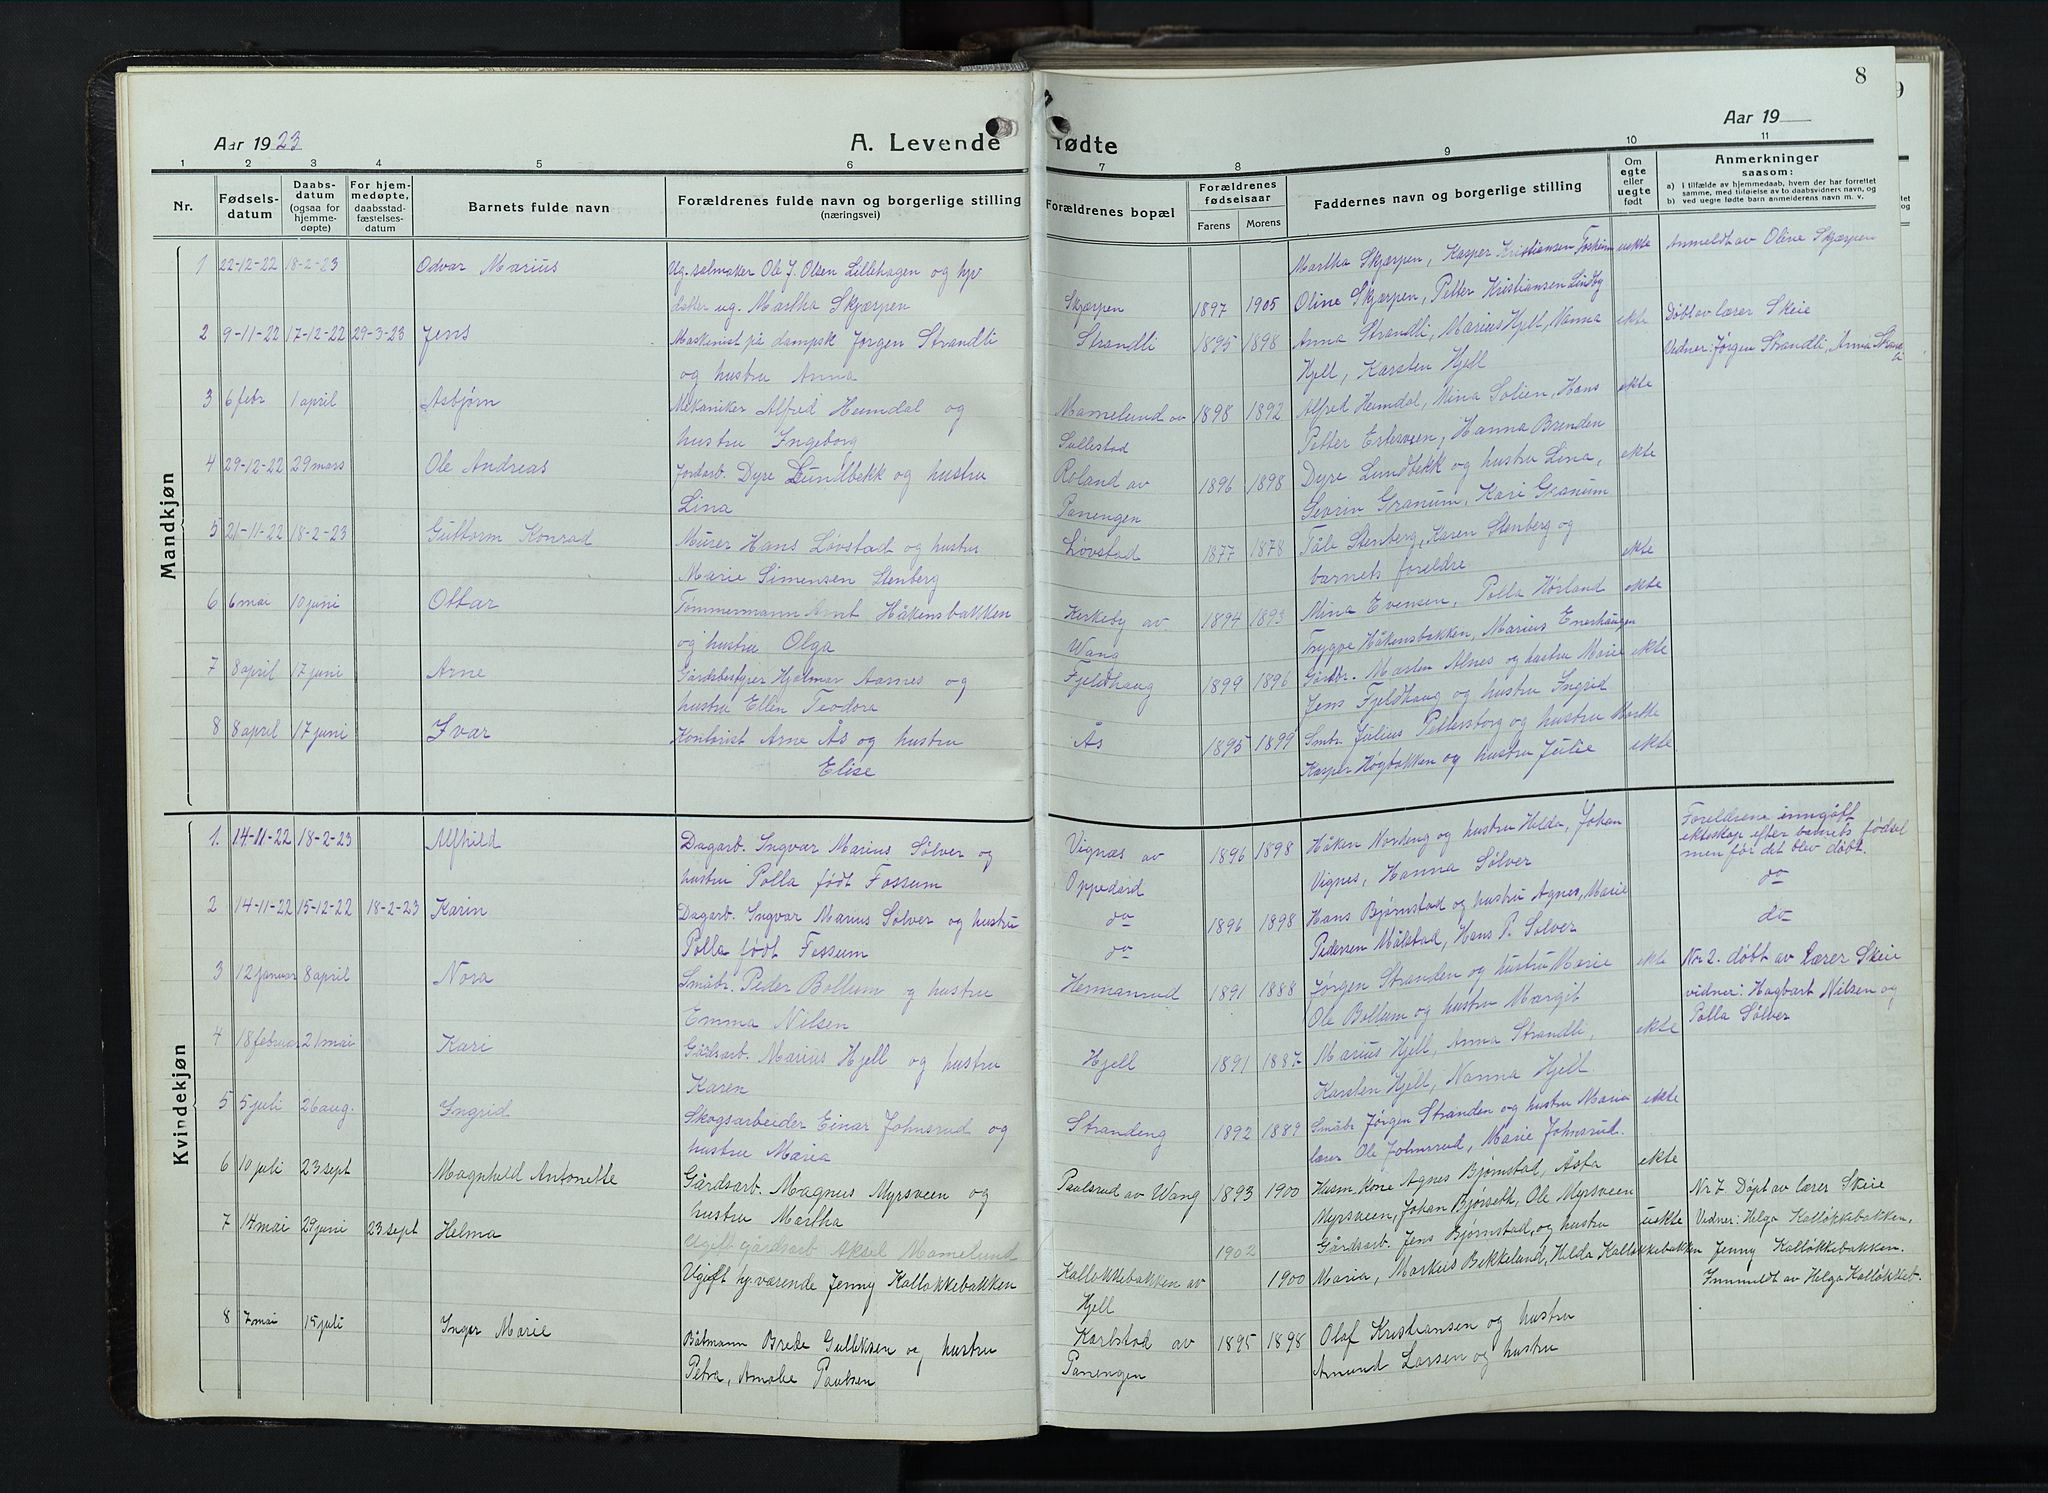 8
Aar 1923
A. Levende fødte
Aar 19
1 2 3 4 5 6 7 8 9 10 11
Nr.
Fødsels-
datum
Daabs-
datum
(ogsaa for
hjemme-
døpte)
For hjem-
medøpte,
daabsstad-
fæstelses-
datum
Barnets fulde navn
Forældrenes fulde navn og borgerlige stilling
(næringsvei)
Forældrenes bopæl
Forældrenes
fødselsaar
Farens Morens
Faddernes navn og borgerlige stilling
Om
egte
eller
uegte
født
Anmerkninger
saasom:
a) I tilfælde av hjemmedaab, hvem der har forrettet
samme, med tilføielse av to daabsvidners navn, og
b) ved uegte fødte barn anmelderens navn m. v.
Mandkjøn
1 22-12-22 18-2-23 Odvar Marius Ug. salmaker Ole J. Olsen Lillehagen og hp Martha Skjærpen, Kasper Kristiansen uekte Anmeldt av Oline Skjærpen
datter ug. Martha Skjærpen Skjærpen 1897 1905 Oline Skjærpen, Petter Kristiansen Lindby
2 9-11-22 17-12-22 29-3-23 Jens Maskinist på dampsk Jørgen Strandli Strandli 1895 1898 Anna Strandli, Marius Hjell, Nanna ekte Døbt av lærer Skeie
og hustru Anna Hjell, Karsten Hjell Vidner: Jørgen Strandli, Anna Strandli
3 6 febr 1 april Asbjørn Mekaniker Alfred Heimdal og Mamelund av 1898 1892 Alfred Heimdal, Mina Solien, Hans ekte
hustru Ingeborg Sullestad Petter Ertesveen, Hanna Brenden
4 29-12-22 29 mars Ole Andreas Jordarb. Dyre Lundbakk og hustru Roland av 1896 1898 Dyre Lundbekk og hustru Lina, ekte
Lina Panengen Sevrin Granum, Kari Granum
5 21-11-22 18-2-23 Guttorm Konrad Murer Hans Løvstad og hustru Løvstad 1877 1878 Tåle Stenberg, Karen Stenberg og
Marie Simensen Stenberg barnets foreldre ekte
6 6 mai 10 juni Ottar Tømmermann Arnt Håkensbakken Kirkeby av 1894 1893 Mina Evensen, Polla Hørland ekte
og hustru Olga Wang Trygve Håkensbakken, Marius Enerhaugen
7 8 april 17 juni Arne Gårdsbestyrer Hjalmar Aarnes og Fjeldhaug 1899 1896 Gårdbr. Marten Alnes og hustru Marie ekte
hustru Ellen Teodora Jens Fjeldhaug og hustru Ingrid
8 8 april 17 juni Ivar Kontorist Arne Ås og hustru Ås 1895 1899 Smbr. Julius Pettersborg og hustru Marthe
Elise Kasper Høgbakken og hustru Julie ekte
Kvindekjøn
1. 14-11-22 18-2-23 Alfhild Dagarb. Ingvar Marius Sølver og Vignæs av 1896 1898 Håken Nordeng og hustru Hilda, Johan Foreldrene inngått
ekteskap efter barnets fødsel
men før det blev døbt.
hustru Polla født Fossum Oppegård Vignes, Hanna Sølver do
2 14-11-22 15-12-22 18-2-23 Karin Dagarb. Ingvar Marius Sølver og hustru do 1896 1898 Hans Bjørnstad og hustru Agnes, Marie do
Polla født Fossum do Pedersen Målstad, Hans P. Sølver
3 12 januar 8 april Nora Småbr. Peder Bollum og hustru Hermansrud 1891 1888 Jørgen Stranden og hustru Marie ekte Nr 2. døbt av lærer Skeie
Emma Nilsen Ole Bollum og hustru Margit vidner: Hagbart Nilsen og
Polla Sølver
4 18 februar 21 mai Kari Gårdsarb. Marius Hjell og hustru Hjell 1891 1887 Marius Hjell, Anna Strandli, ekte
Karen Karsten Hjell, Nanna Hjell
5 5 juli 26 aug. Ingrid Skogsarbeider Einar Johnsrud og Strandeng 1892 1889 Småbr Jørgen Stranden og hustru Maria ekte
hustru Maria lærer Ole Johnsrud, Marie Johnsrud.
6 10 juli 23 sept Magnhild Antonette Gårdsarb. Magnus Myrsveen og Paulsrud av Wang 1893 1900 Husm. kone Agnes Bjørnstad, Åsta ekte
hustru Martha Myrsveen, Johan Bjørseth, Ole Myrsveen
7 14 mai 29 juni 23 sept Helma Ugift gårdsarb Aksel Mamelund 1902 Gårdsarb. Jens Bjørnstad, og hustru uekte Nr 7. Døpt av lærer Skeie
Vidner: Helga Kalløkkebakken,
Ugift hj.værende Jenny Kalløkkebakken Kalløkkebakken av 1900 Maria, Markus Bekkelund, Hilda Kalløkkebakken Jenny Kalløkkebakken.
Hjell Innmeldt av Helga Kalløkkeb.
8 7 mai 15 juli Inger Marie Båtmann Brede Gulliksen og hustru Karlstad av 1895 1898 Olaf Kristiansen og hustru
Petra, Amalie Paulsen Panengen Amund Larsen og hustru